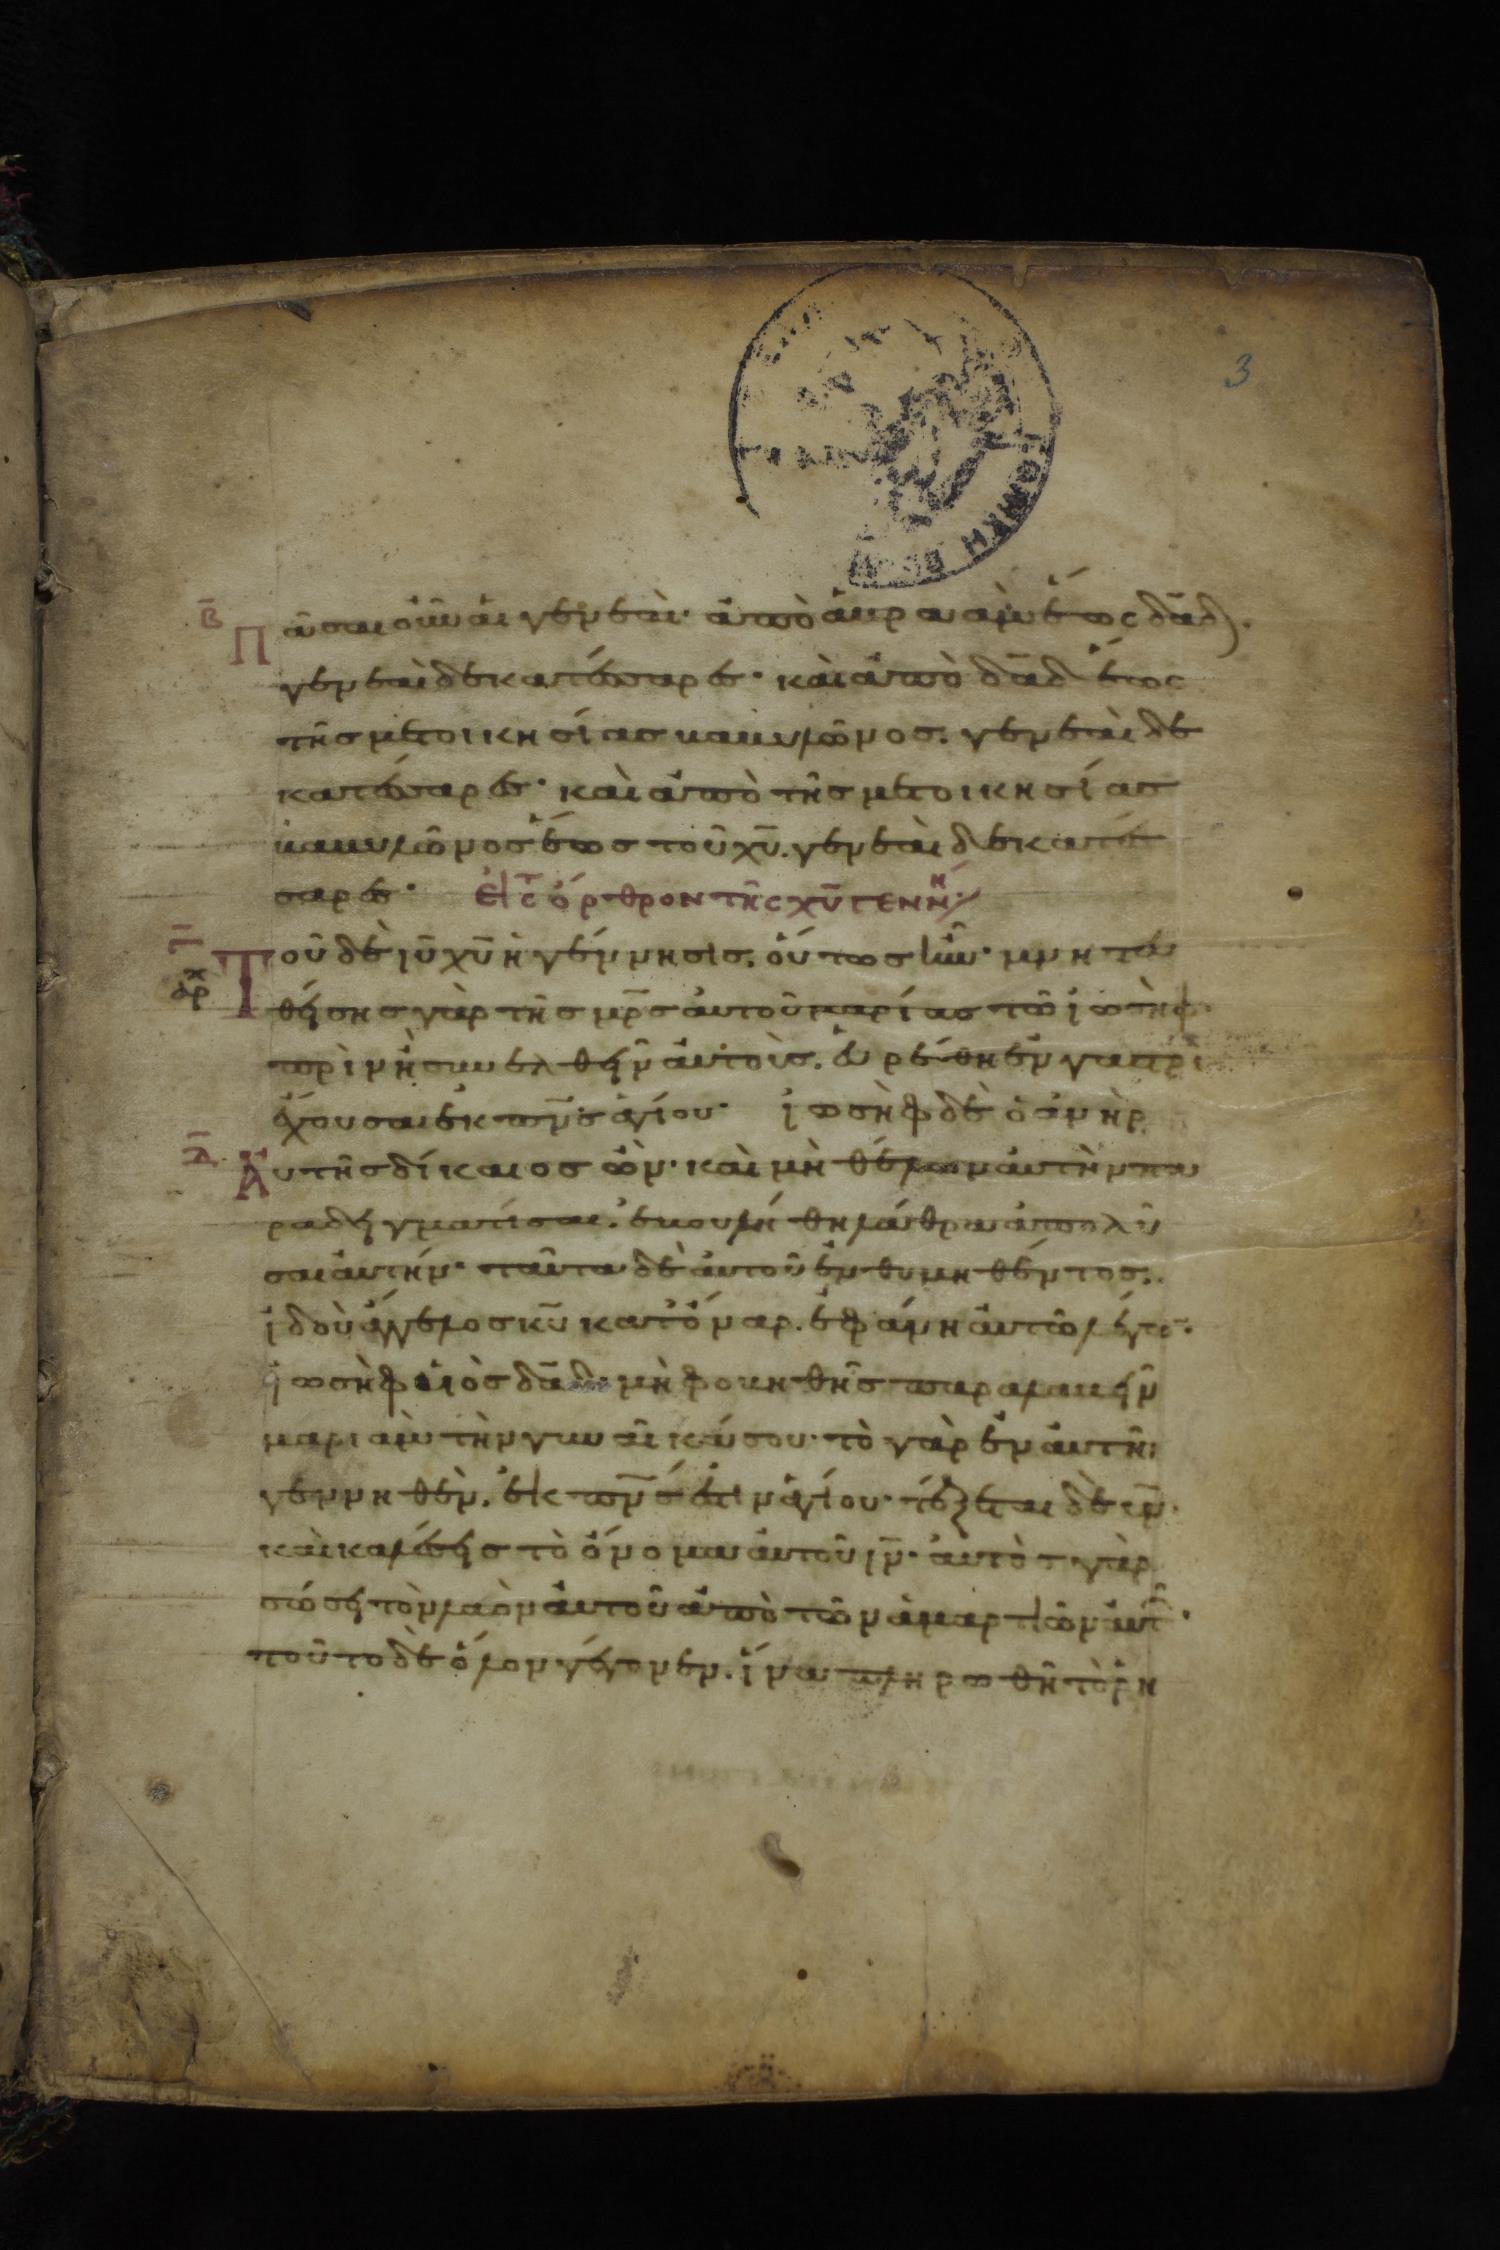 3
Β̅
Πᾶσαι οὖν αἱ γενεαὶ· ἀπὸ ἀβραὰμ ἕως δα̅δ.
γενεαὶ δεκατέσσαρες· καὶ ἀπὸ δα̅δ ἕως
τῆς μετοικησίας βαβυλῶνος. γενεαὶ δε
κατέσσαρες· καὶ ἀπὸ τῆς μετοικησίας
βαβυλῶνος ἕως τοῦ χυ̅. γενεαὶ δεκατέσ
σαρες· εἰς τ ὄρθρον τῆς χυ̅ γενν
Γ̅
ἀρχ
Τοῦ δὲ ιυ̅ χυ̅ ἡ γέννησις. οὕτως ἦν· μνηστευ
θείσης γὰρ τῆς μρ̅ς αὐτοῦ μαρίας τῶ ἰωσὴφ·
πρὶν ἢ συνελθεῖν αὐτοὺς. εὑρέθη ἐν γαστρὶ
ἔχουσα ἐκ πν̅ς ἁγίου· ἰωσὴφ δὲ ὁ ἀνὴρ
Δ̅
Αὐτῆς δίκαιος ὢν· καὶ μὴ θέλων αὐτὴν πα
ραδειγματίσαι. ἐβουλήθη λάθρα ἀπολῦ
σαι αὐτήν· ταῦτα δὲ αὐτοῦ ἐνθυμηθέντος.
ἰδοὺ ἄγγελος κυ̅ κατ᾽ ὄναρ. ἐφάνη αὐτῶ λέγω̅·
ἰωσὴφ υἱὸς δα̅δ· μὴ φοβηθῆς παραλαβεῖν
μαριὰμ τὴν γυναῖκά σου· τὸ γὰρ ἐν αὐτῆ
γεννηθὲν. ἐκ πν̅ς ἐστιν ἁγίου· τέξεται δὲ υν̅·
καὶ καλέσεις τὸ ὄνομα αὐτοῦ ιν̅· αὐτὸς γὰρ
σώσει τὸν λαὸν αὐτοῦ ἀπὸ τῶν ἁμαρτιῶν αὐτ·
τοῦτο δὲ ὅλον γέγονεν. ἵνα πληρωθῆ τὸ ῥη